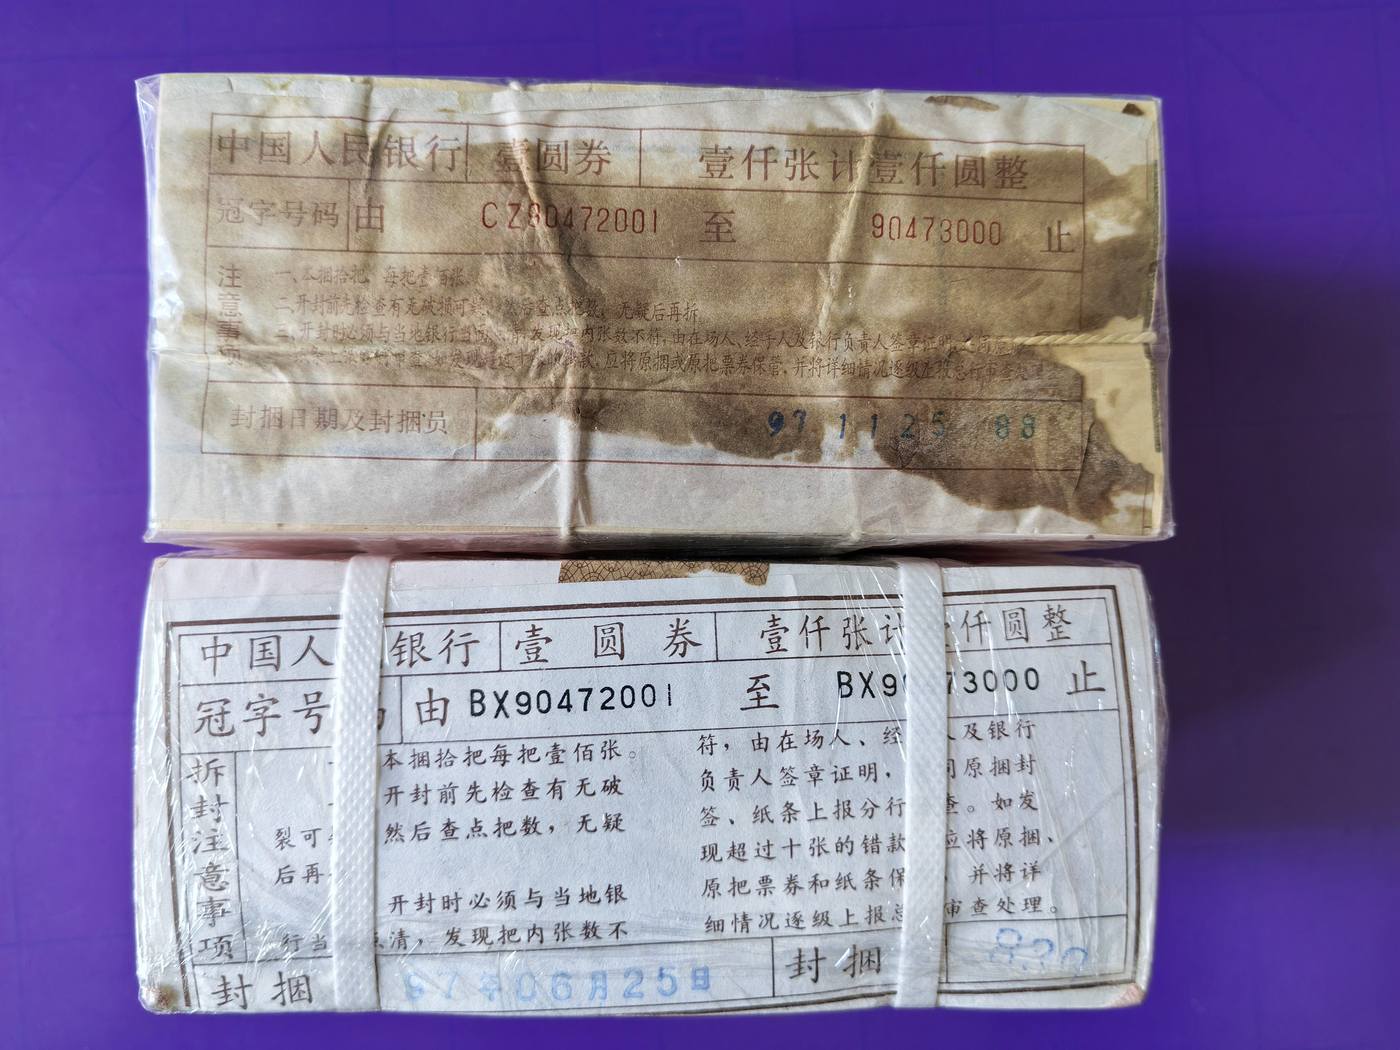 中国人民银行 壹圆券 壹仟张计壹仟圆整
冠字号码 由 CZ90472001 至 90473000 止
注意事项
一、本捆拾把,每把壹佰张.
二.开封前先检查有无破损可疑,然后查点把数,无疑后再拆.
三.开封时必须与当地银行当面点清,发现把内张数不符,由在场人、经手人及银行负责人签章证明,
应将原捆或原把票券保管,并将详细情况逐级上报总行审查处
封捆日期及封捆员 97 11 25 88
中国人 银行 壹圆券 壹仟张计 仟圆整
冠字号 由 BX90472001 至 BX9 73000 止
拆封注意事项
本捆拾把每把壹佰张。
开封前先检查有无破
裂可 然后查点把数,无疑
后再
开封时必须与当地银
行当 点清,发现把内张数不
符,由在场人、经 人及银行
负责人签章证明, 同原捆封
签、纸条上报分行 查。如发
现超过十张的错款 应将原捆、
原把票券和纸条保 ,并将详
细情况逐级上报总 审查处理。
封捆 97年06月25日 封捆